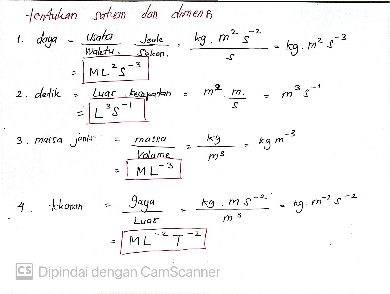 tentukan satuan dan dimensi
1. daya = Usaha / Waktu = Joule / Sekon = kg . m² s⁻² / s = kg . m² s⁻³
= ML² S⁻³
2. debit = Luas . kecepatan = m² . m / s = m³ s⁻¹
= L³ S⁻¹
3. massa jenis = massa / Volume = kg / m³ = kg m⁻³
= ML⁻³
4. tekanan = gaya / Luas = kg . m s⁻² / m³ = kg . m⁻² s⁻²
= ML⁻² T⁻²
CS Dipindai dengan CamScanner